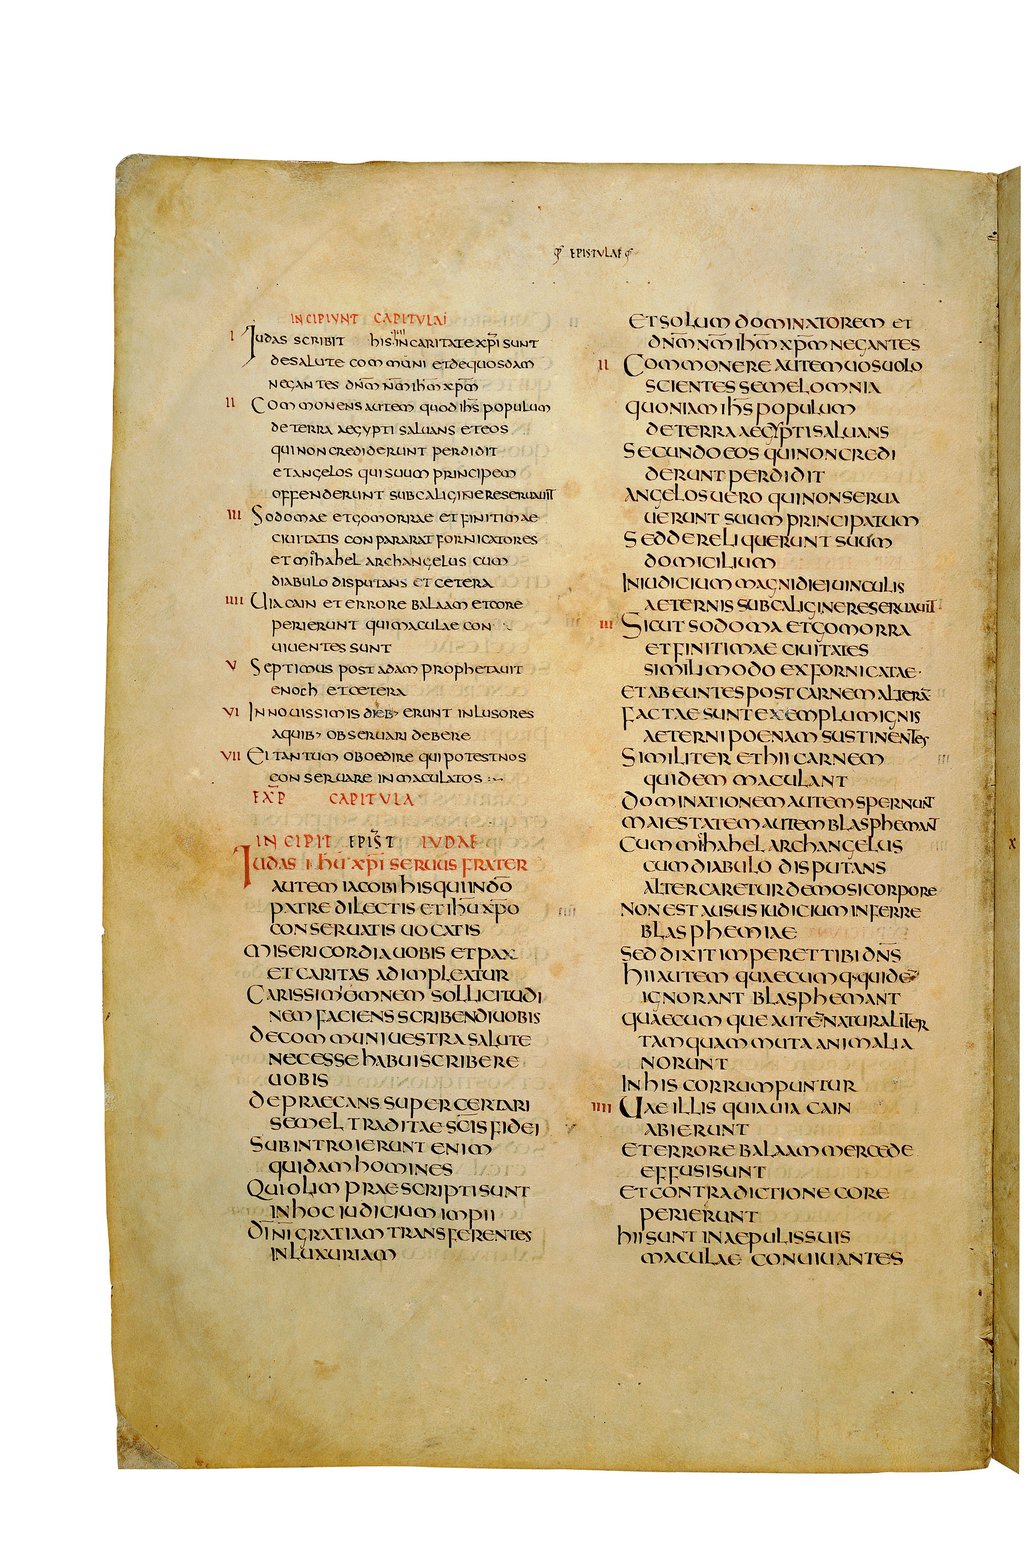 EPISTULAE
INCIPIUNT CAPITULA
I Iudas scribit his in caritate xpi sunt
de salute communi et de quosdam
negantes dnm nm ihm xpm
II Commonens autem quod ihs populum
de terra aegypti saluans et eos
qui non crediderunt perdidit
et angelos qui suum principem
offenderunt sub caligine reseruauit
III Sodomae et gomorrae et finitimae
ciuitatis conpararat fornicatores
et mihahel archangelus cum
diabulo disputans et cetera
IIII Uia cain et errore balaam et core
perierunt qui maculae con
uiuentes sunt
V Septimus post adam prophetauit
enoch et cetera
VI In nouissimis dieb; erunt inlusores
a quib; obseruari debere
VII Ei tantum oboedire qui potest nos
conseruare inmaculatos
EXP CAPITULA
INCIPIT EPIST IUDAE
Iudas ihu xpi seruus frater
autem iacobi his qui in do
patre dilectis et ihu xpo
conseruatis uocatis
misericordia uobis et pax
et caritas adimpleatur
Carissimi omnem sollicitudi
nem faciens scribendi uobis
de communi uestra salute
necesse habui scribere
uobis
depraecans supercertari
semel traditae scis fidei
Subintroierunt enim
quidam homines
Qui olim praescripti sunt
in hoc iudicium impii
di ni gratiam transferentes
in luxuriam
et solum dominatorem et
dnm nm ihm xpm negantes
II Commonere autem uos uolo
scientes semel omnia
quoniam ihs populum
de terra aegypti saluans
Secundo eos qui non credi
derunt perdidit
angelos uero qui non serua
uerunt suum principatum
Sed dereliquerunt suum
domicilium
In iudicium magni diei uinculis
aeternis sub caligine reseruauit
III Sicut sodoma et gomorra
et finitimae ciuitates
simili modo exfornicatae
et abeuntes post carnem alteram
factae sunt exemplum ignis
aeterni poenam sustinentes
Similiter et hii carnem
quidem maculant
dominationem autem spernunt
maiestatem autem blasphemant
Cum mihahel archangelus
cum diabulo disputans
altercaretur de mosi corpore
non est ausus iudicium inferre
blasphemiae
Sed dixit imperet tibi dns
hii autem quaecumq; quidem
ignorant blasphemant
quaecumque autem naturaliter
tamquam muta animalia
norunt
In his corrumpuntur
IIII Uae illis qui a uia cain
abierunt
et errore balaam mercede
effusi sunt
et contradictione core
perierunt
hii sunt in aepulis suis
maculae conuiuantes